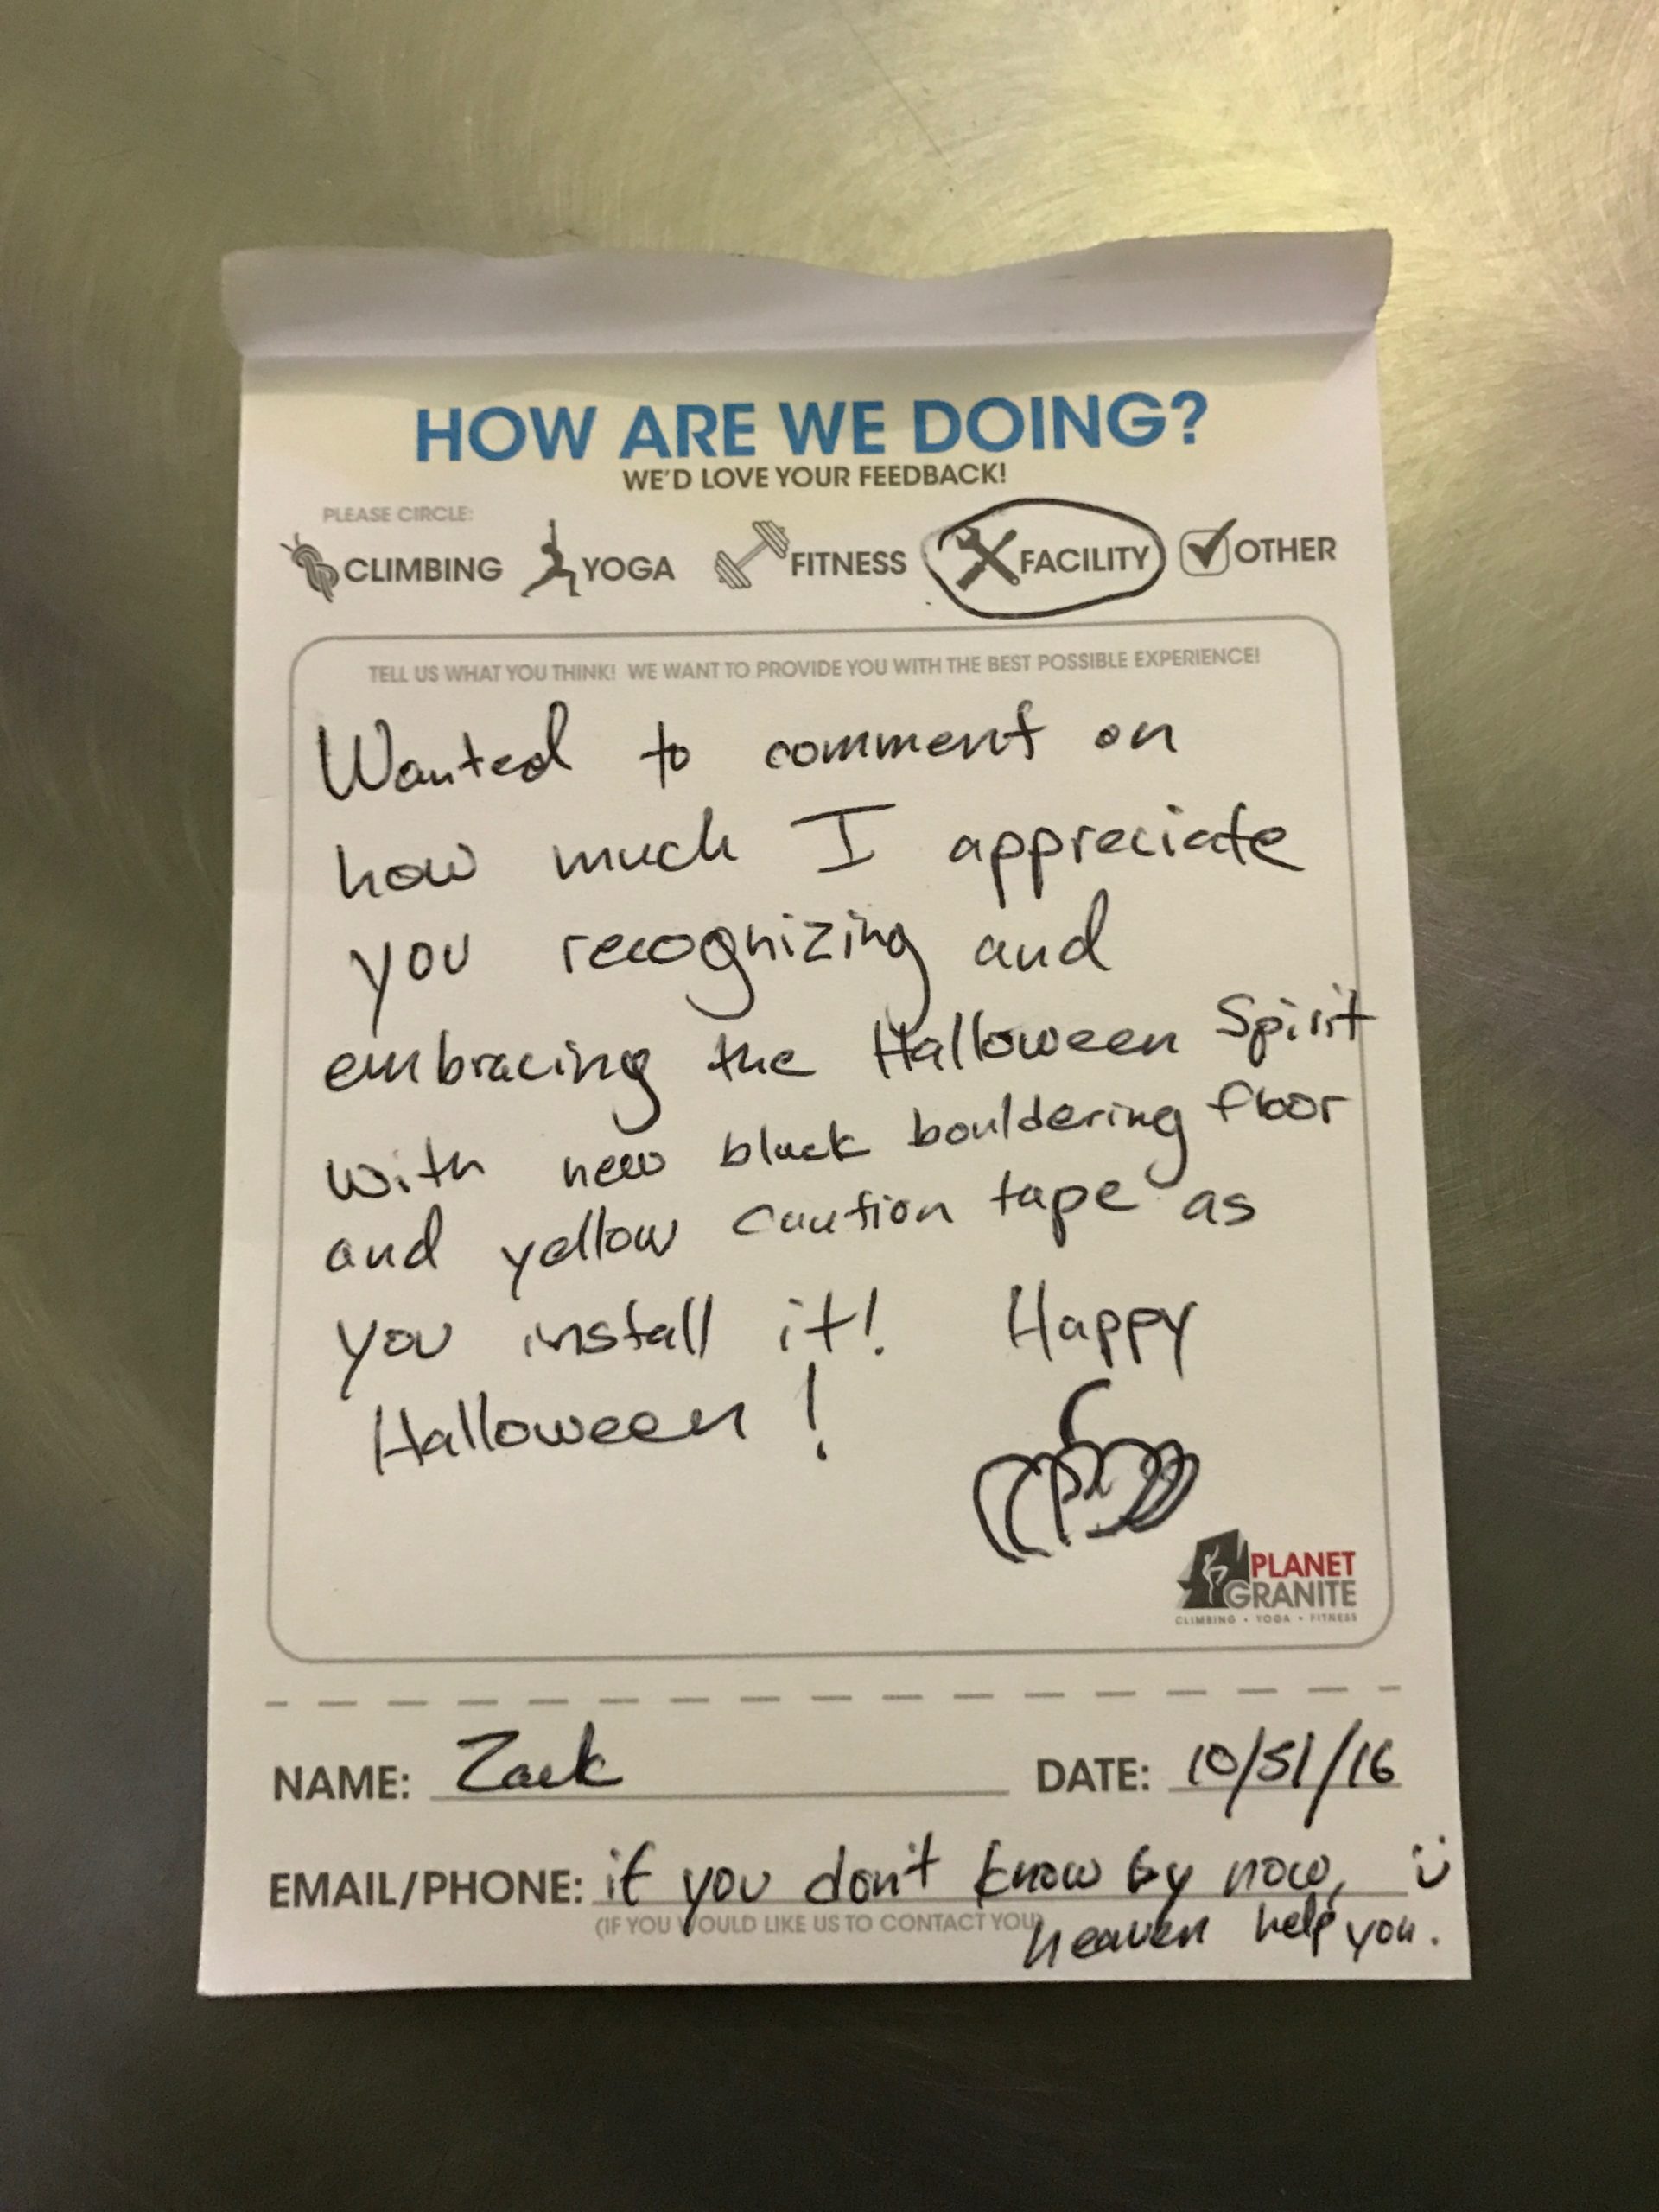 HOW ARE WE DOING?
WE'D LOVE YOUR FEEDBACK!
PLEASE CIRCLE:
CLIMBING YOGA FITNESS FACILITY OTHER
TELL US WHAT YOU THINK! WE WANT TO PROVIDE YOU WITH THE BEST POSSIBLE EXPERIENCE!
Wanted to comment on
how much I appreciate
you recognizing and
embracing the Halloween Spirit
with new black bouldering floor
and yellow caution tape as
you install it! Happy
Halloween!
PLANET
GRANITE
CLIMBING • YOGA • FITNESS
NAME: Zack DATE: 10/31/16
EMAIL/PHONE: if you don't know by now,
(IF YOU WOULD LIKE US TO CONTACT YOU)
heaven help you.